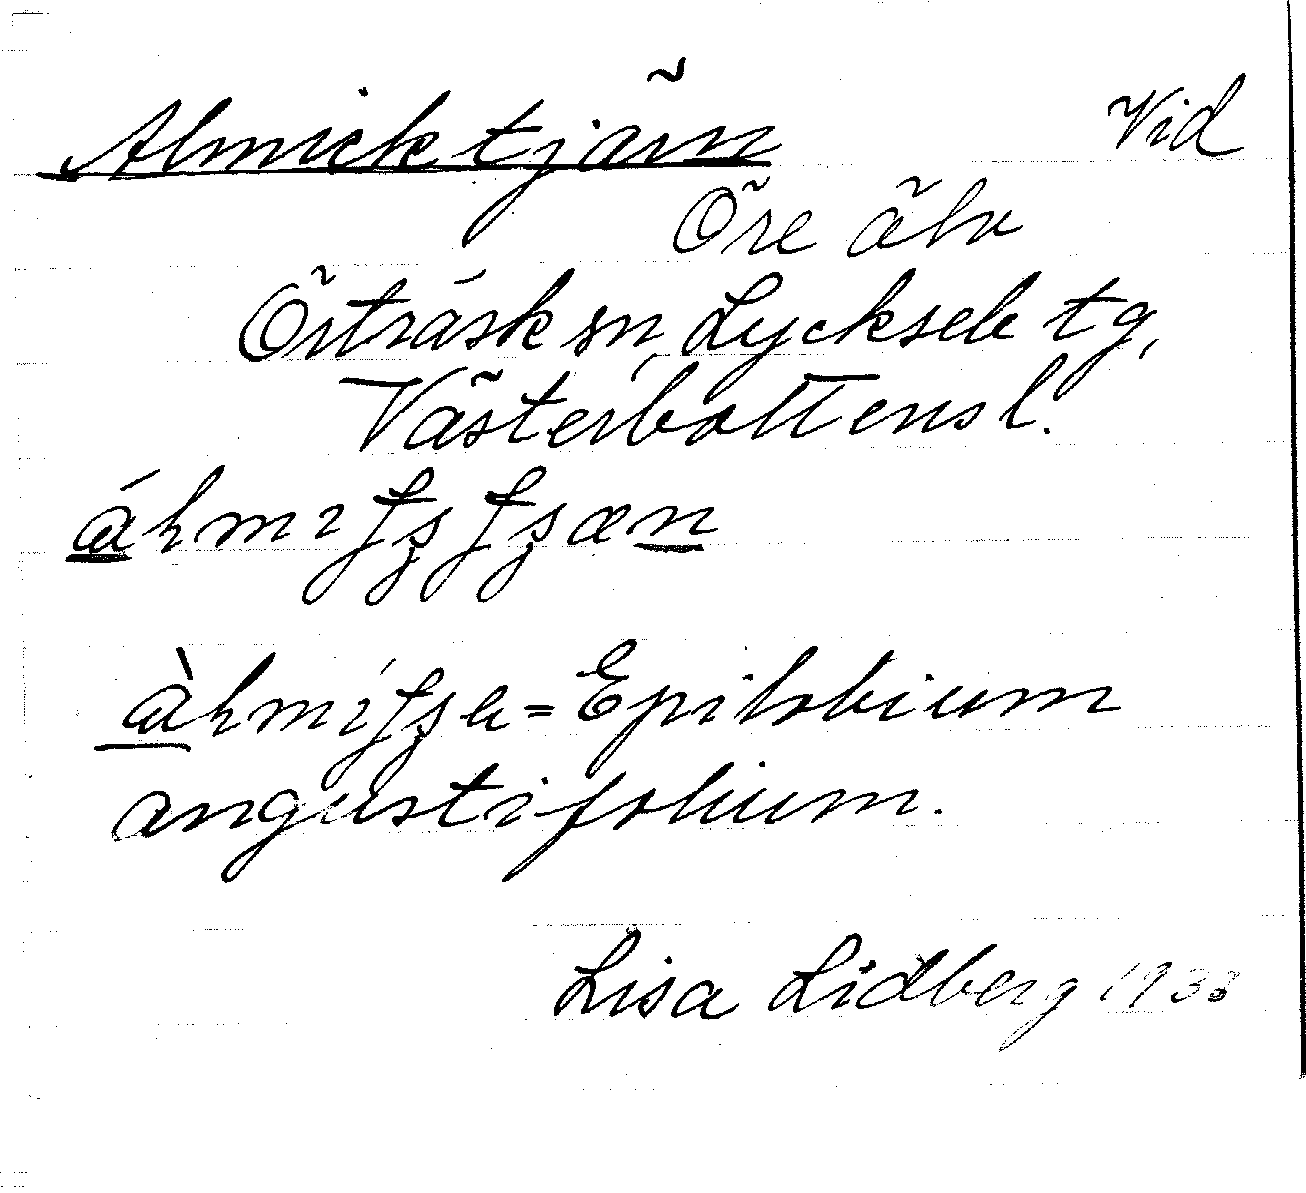 Almicktjärn Vid
Öre älv
Örträsk sn, Lycksele tg,
Västerbottens l.
Epilobium
angustifolium.
Lisa Lidberg 1933